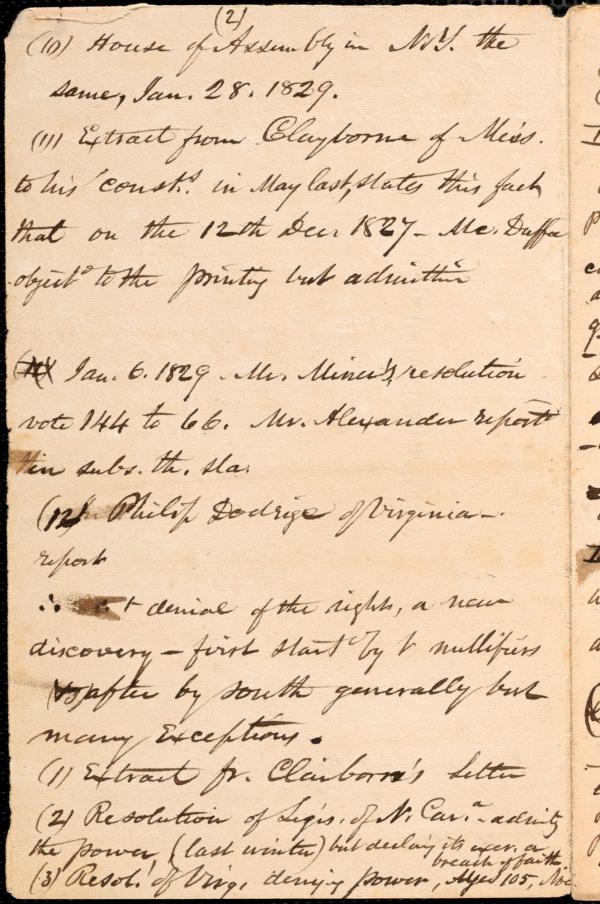 (2)
(10) House of Assembly in N.Y. the
same, Jan. 28. 1829.
(11) Extract from Clayborne of Miss.
to his const.s in May last, states this fact
that on the 12th Dec. 1827 - Mc. Duffie
object.d to the printing but admittin
Jan. 6. 1829 - Mr. Miner's resolution
vote 144 to 66. Mr. Alexander report
in subs. th. sla.
(12) Philip Dodrige of Virginia -
report
∴ t denial of the rights, a new
discovery - first start.d by t nullifiers
after by south generally but
many exceptions.
(1) Extract fr. Claiborn's Letter
(2) Resolution of Legis. of N. Car.a - admitg
the power, (last winter) but declarg its exer. a
breach of faith.
(3) Resol. of Virg. denying power, Ayes 105,